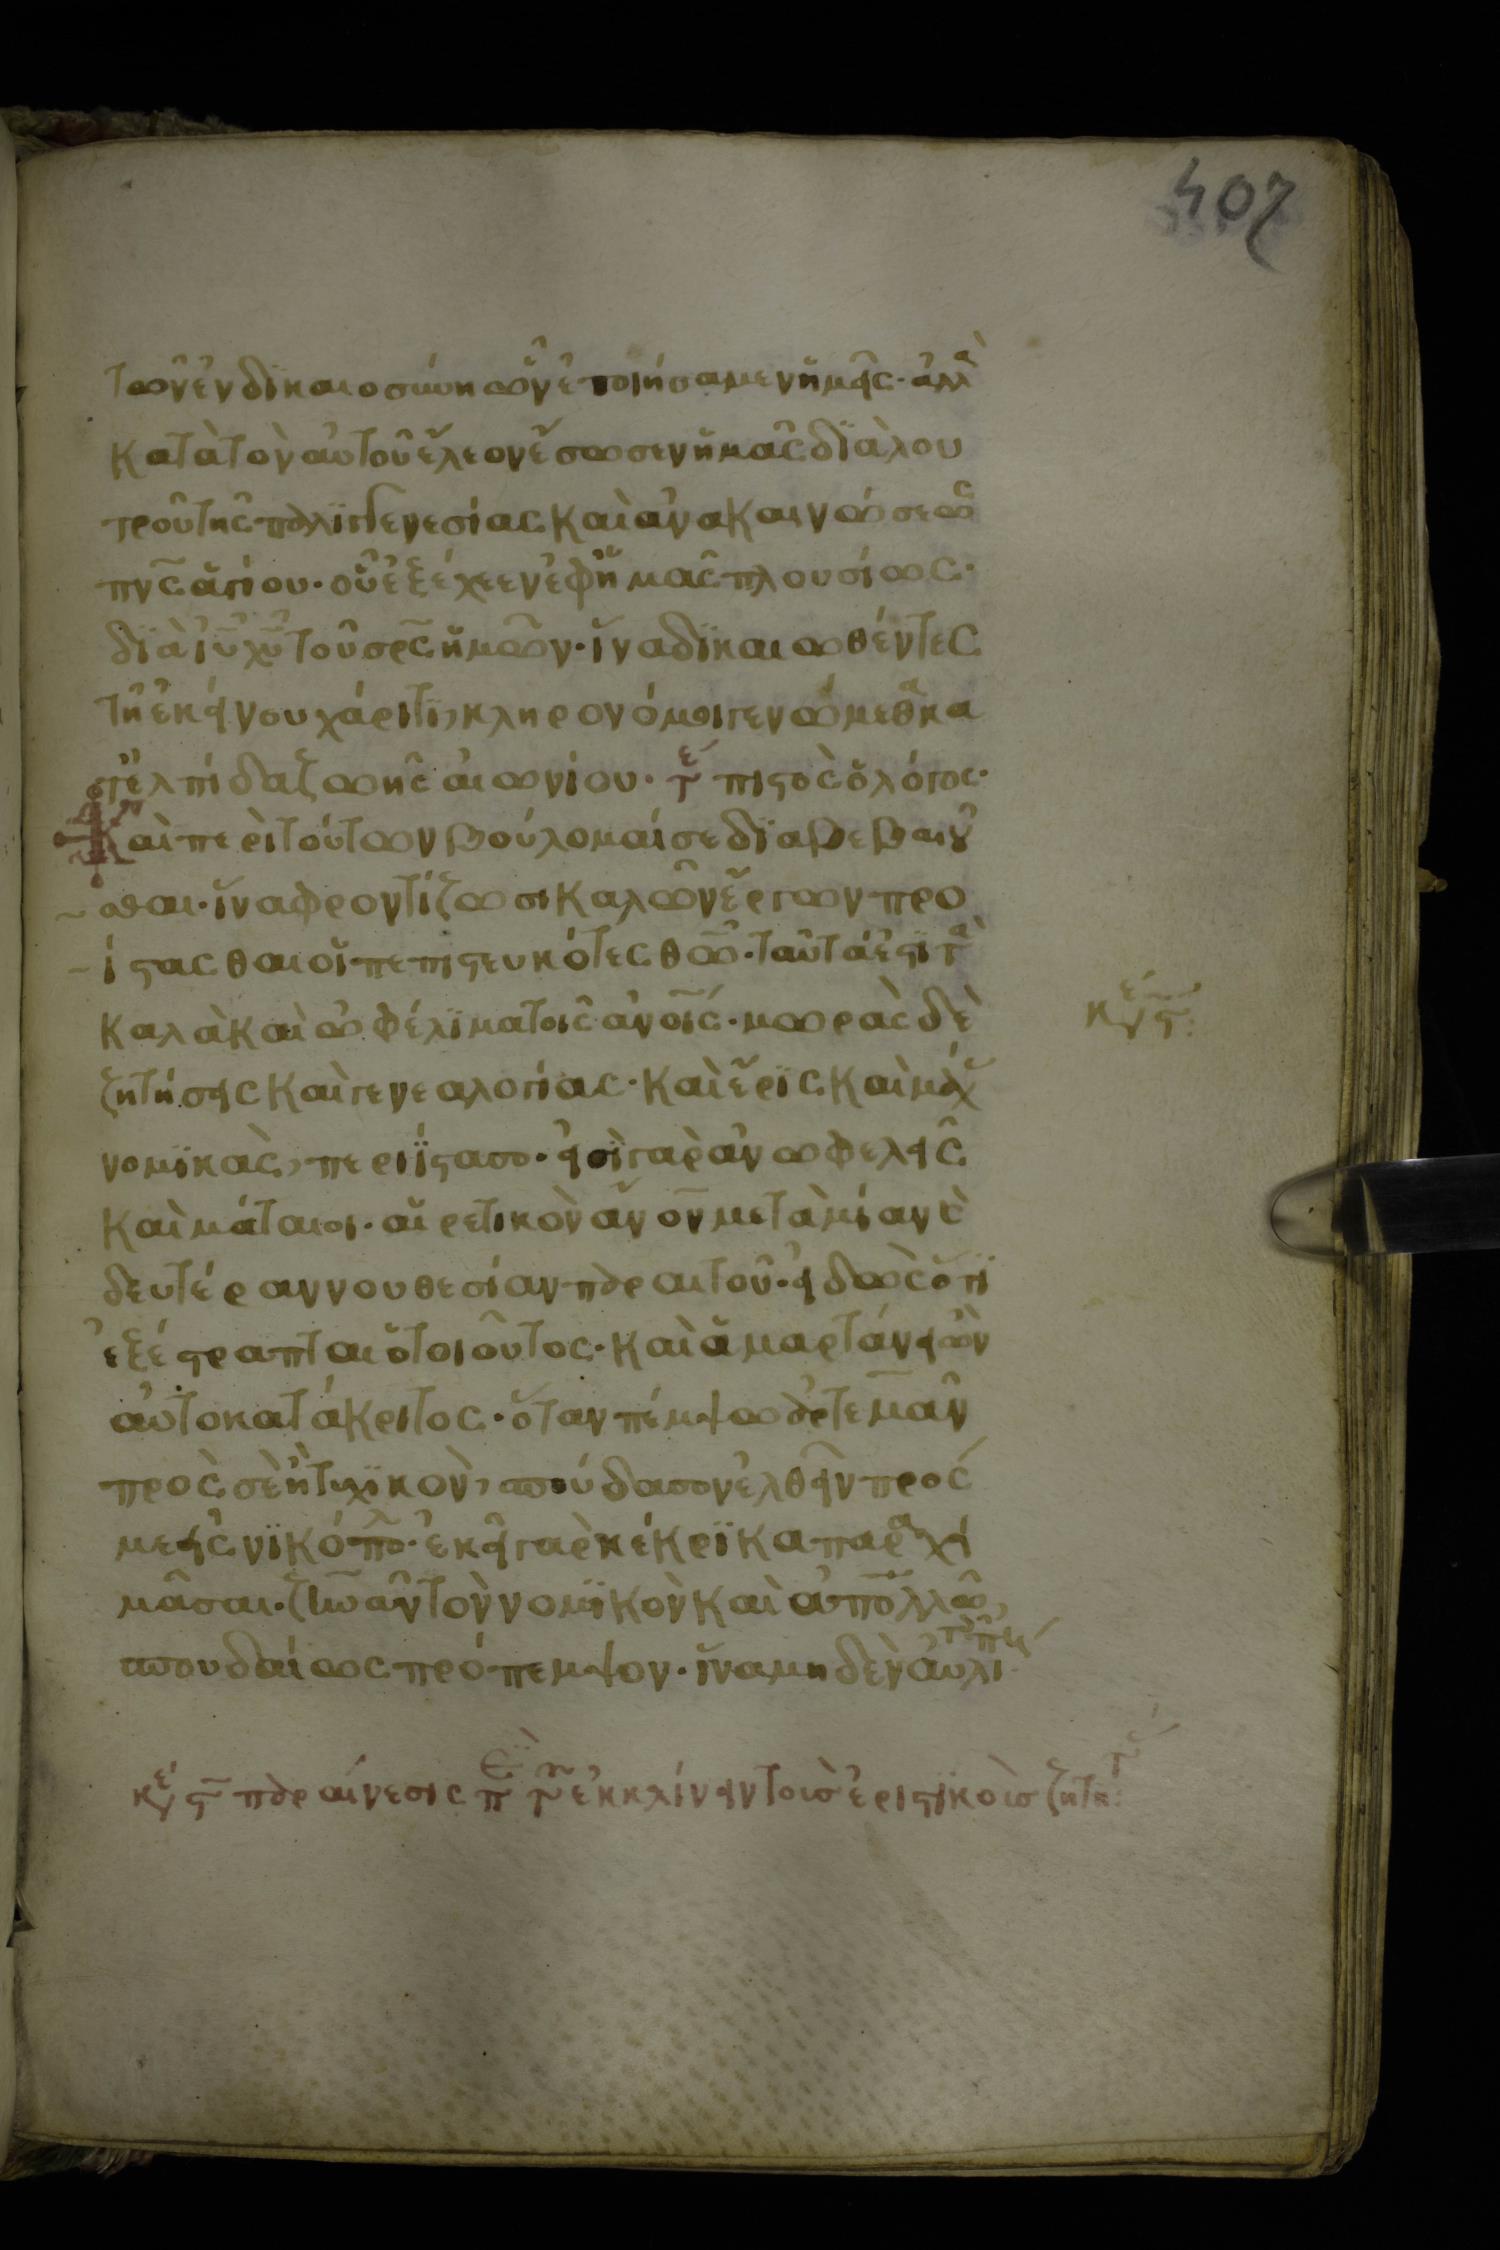 407
τῶν ἐν δικαιοσύνη ὧν ἐποιήσαμεν ἡμεῖς· ἀλλὰ
κατὰ τὸν αὐτοῦ ἔλεον ἔσωσεν ἡμᾶς διὰ λου
τροῦ τῆς παλιγγενεσίας καὶ ἀνακαινώσεως
πνς ἁγίου· οὗ ἐξέχεεν ἐφ ἡμᾶς πλουσίως·
διὰ ιυ χυ τοῦ σρς ἡμῶν· ἵνα δικαιωθέντες
τῆ ἐκείνου χάριτι, κληρονόμοι γενώμεθα κα
τ ἐλπίδα ζωῆς αἰωνίου· πιστὸς ὁ λόγος·
Καὶ περὶ τούτων βούλομαί σε διαβεβαιοῦ
σθαι· ἵνα φροντίζωσι καλῶν ἔργων προ
ίστασθαι οἱ πεπιστευκότες θω· ταῦτά ἐστι τὰ
καλὰ καὶ ὠφέλιμα τοῖς ανοις· μωρὰς δὲ
κε ϛ
ζητήσεις καὶ γενεαλογίας· καὶ ἔρις καὶ μάχ
νομικὰς, περιίστασο· εἰσὶ γὰρ ἀνωφελεῖς
καὶ μάταιοι· αἱρετικὸν ανον μετὰ μίαν καὶ
δευτέραν νουθεσίαν παραιτοῦ· εἰδὼς ὅτι
ἐξέστραπται ὁ τοιοῦτος· καὶ ἁμαρτάνει ὢν
αὐτοκατάκριτος· ὅταν πέμψω ἀρτεμᾶν
πρὸς σὲ ἢ τυχικὸν, σπούδασον ἐλθεῖν πρός
με εἰς νικόπολ· ἐκεῖ γὰρ κέκρικα παραχει
μᾶσαι· ζινᾶν τὸν νομικὸν καὶ ἀπολλῶ,
σπουδαίως πρόπεμψον· ἵνα μηδὲν αὐτοῖς λείπη
κε ϛ παραίνεσις περὶ τοῦ ἐκκλίνειν τοῖς ἐριστικοῖς ζητη